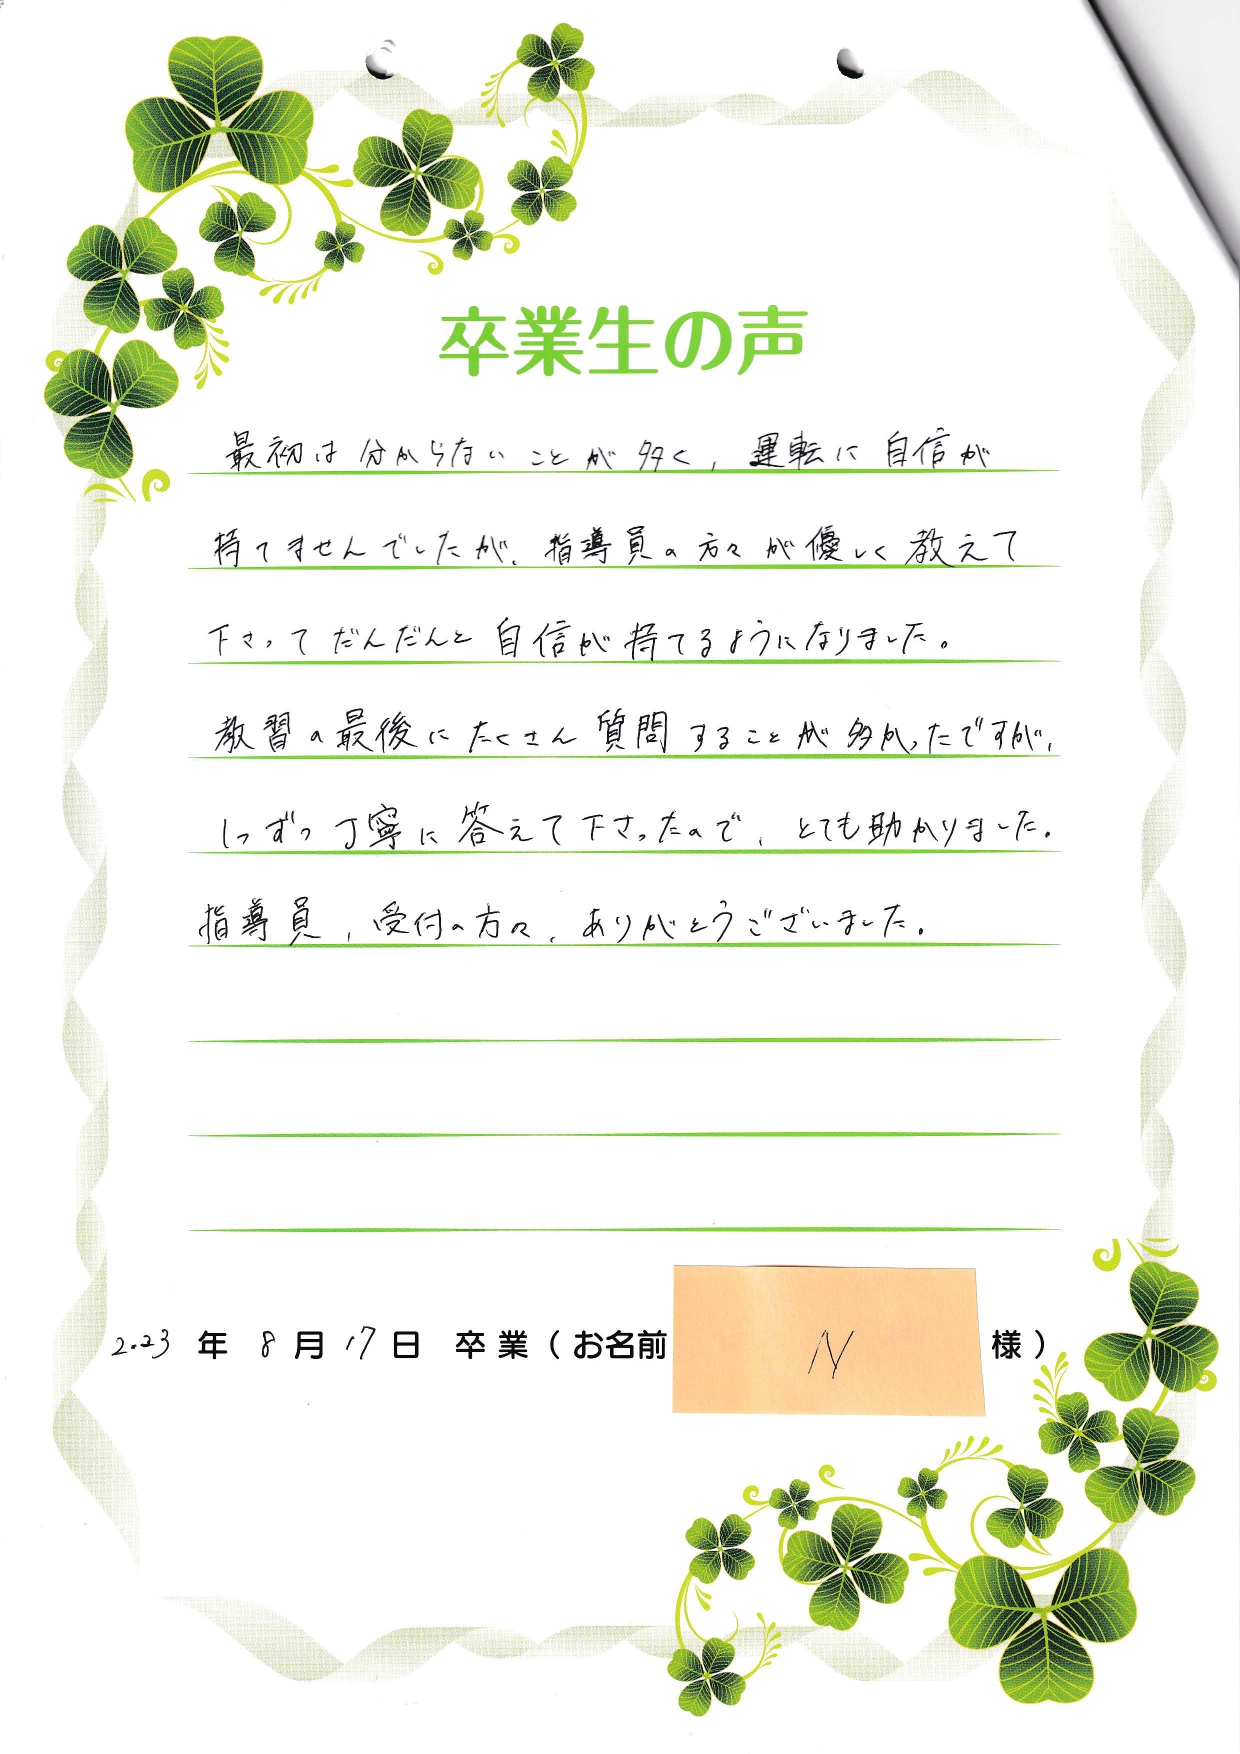 卒業生の声
最初は分からないことが多く、運転に自信が
持てませんでしたが、指導員の方々が優しく教えて
下さってだんだんと自信が持てるようになりました。
教習の最後にたくさん質問することが多かったですが、
1つずつ丁寧に答えて下さったので、とても助かりました。
指導員、受付の方々、ありがとうございました。
2023年8月17日 卒業（お名前 N 様）